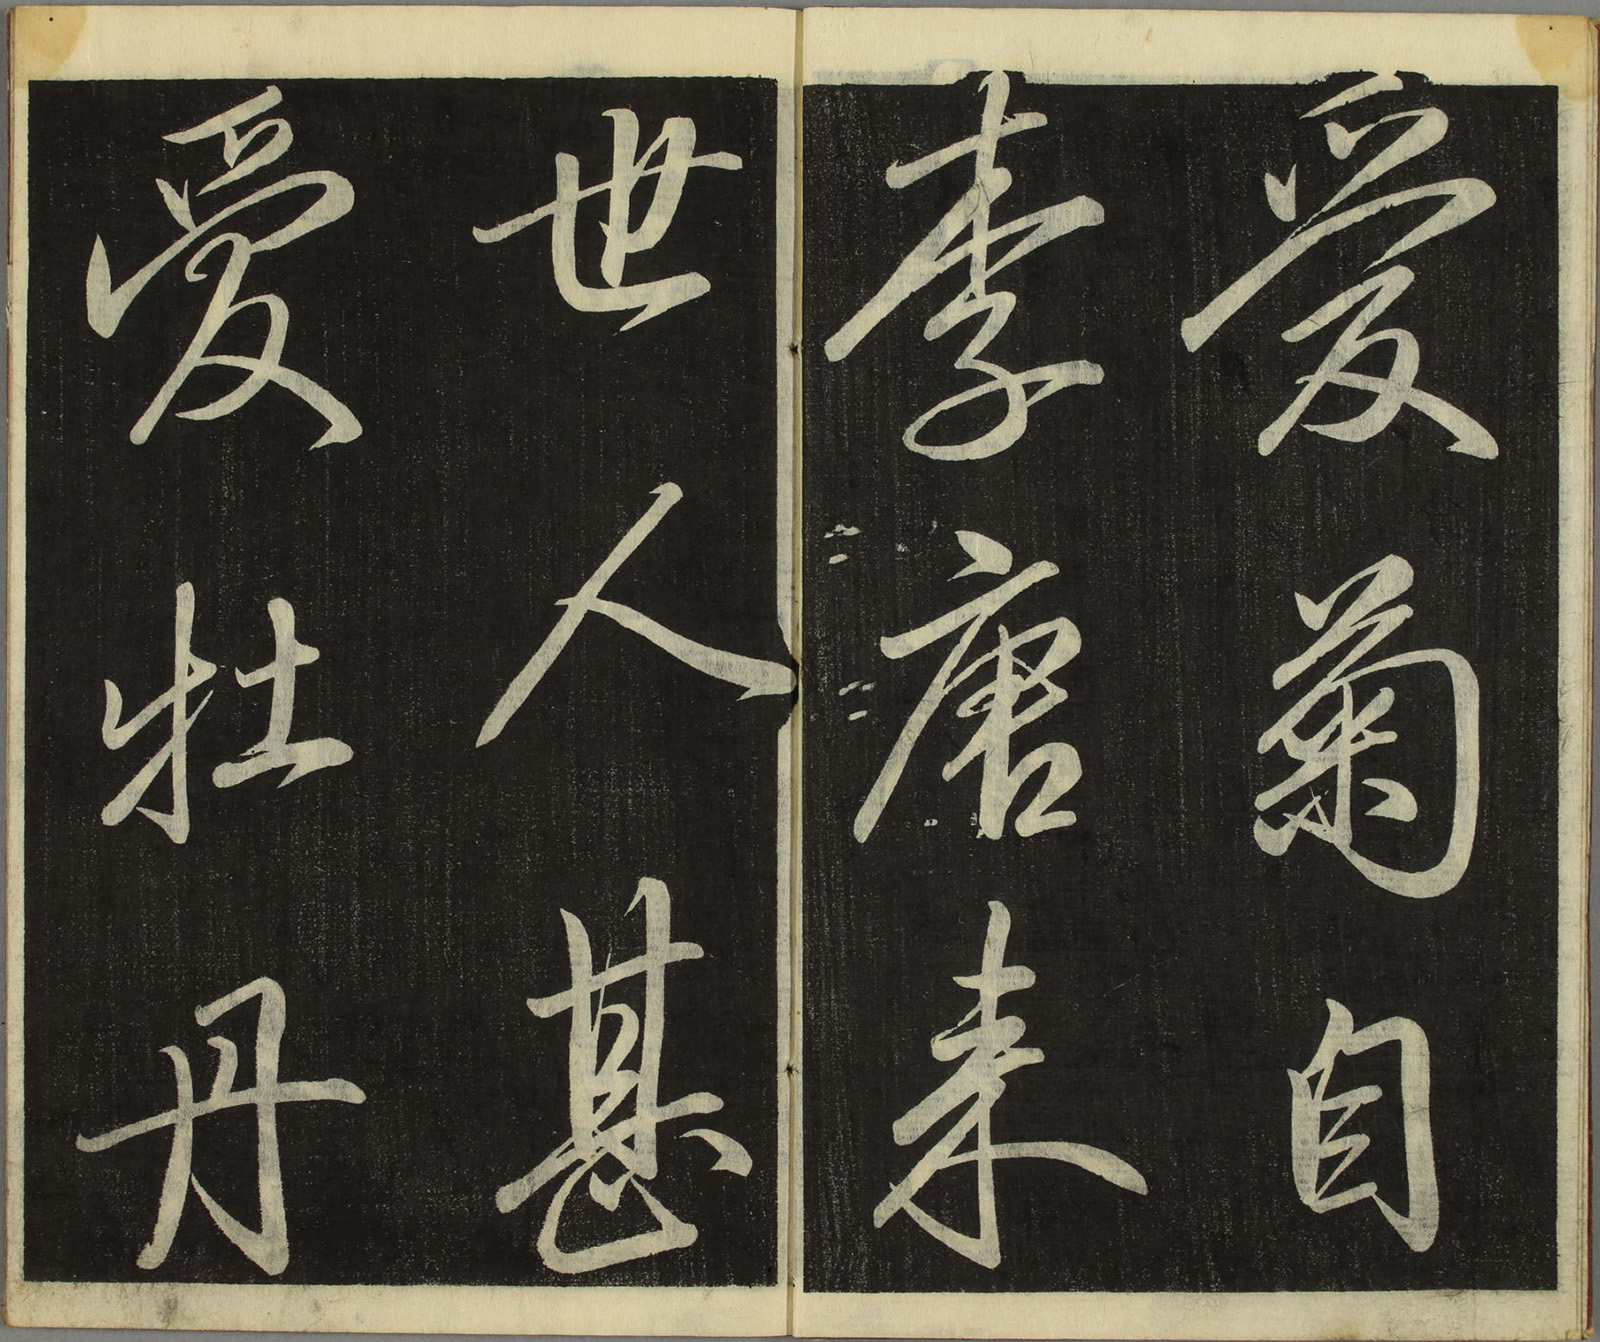 愛菊自
李唐来
世人甚
愛牡丹